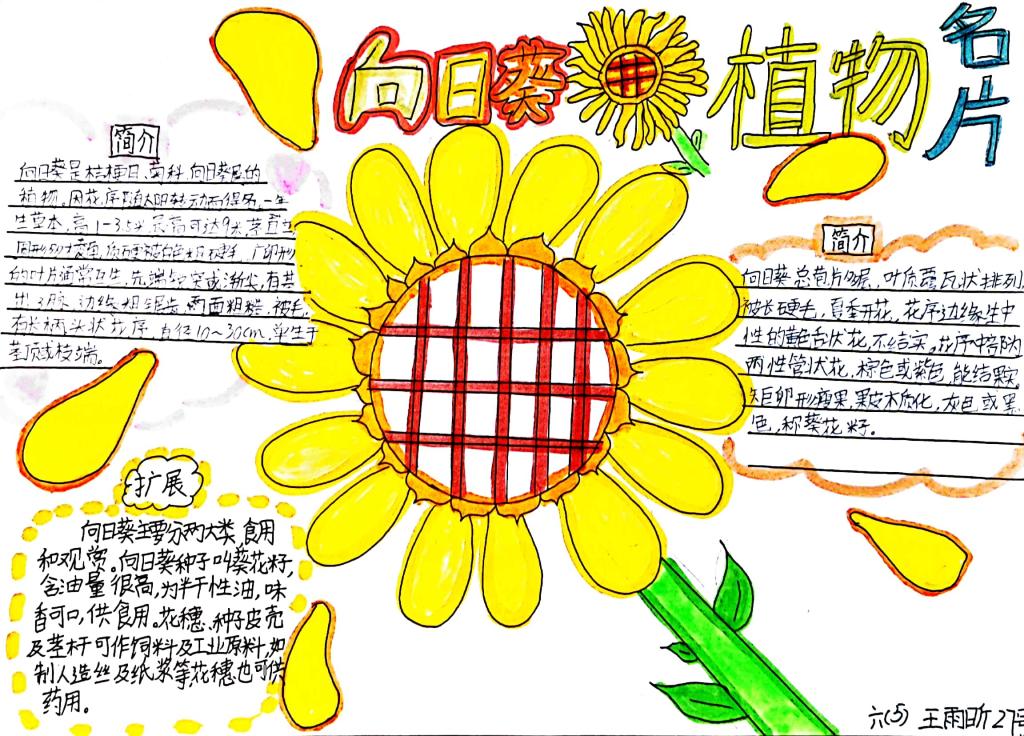 向日葵 植物名片
简介
向日葵是桔梗目、菊科、向日葵属的
植物。因花序随太阳转动而得名。一年
生草本，高1-3.5米，最高可达9米，茎直立，
圆形多棱角，质硬被白色粗硬毛，广卵形
的叶片通常互生，先端锐突或渐尖，有基
出3脉，边缘粗锯齿，两面粗糙，被毛，
有长柄，头状花序，直径10~30cm，单生于
茎顶或枝端。
简介
向日葵总苞片多层，叶质覆瓦状排列，
被长硬毛，夏季开花，花序边缘生中
性的黄色舌状花，不结实。花序中部为
两性管状花，棕色或紫色，能结果实。
矩卵形瘦果，果皮木质化，灰色或黑
色，称葵花籽。
扩展
向日葵主要分两大类，食用
和观赏。向日葵种子叫葵花籽，
含油量很高，为半干性油，味
香可口，供食用。花穗、种子皮壳
及茎秆可作饲料及工业原料，如
制人造丝及纸浆等，花穗也可供
药用。
六(5) 王雨昕 27号